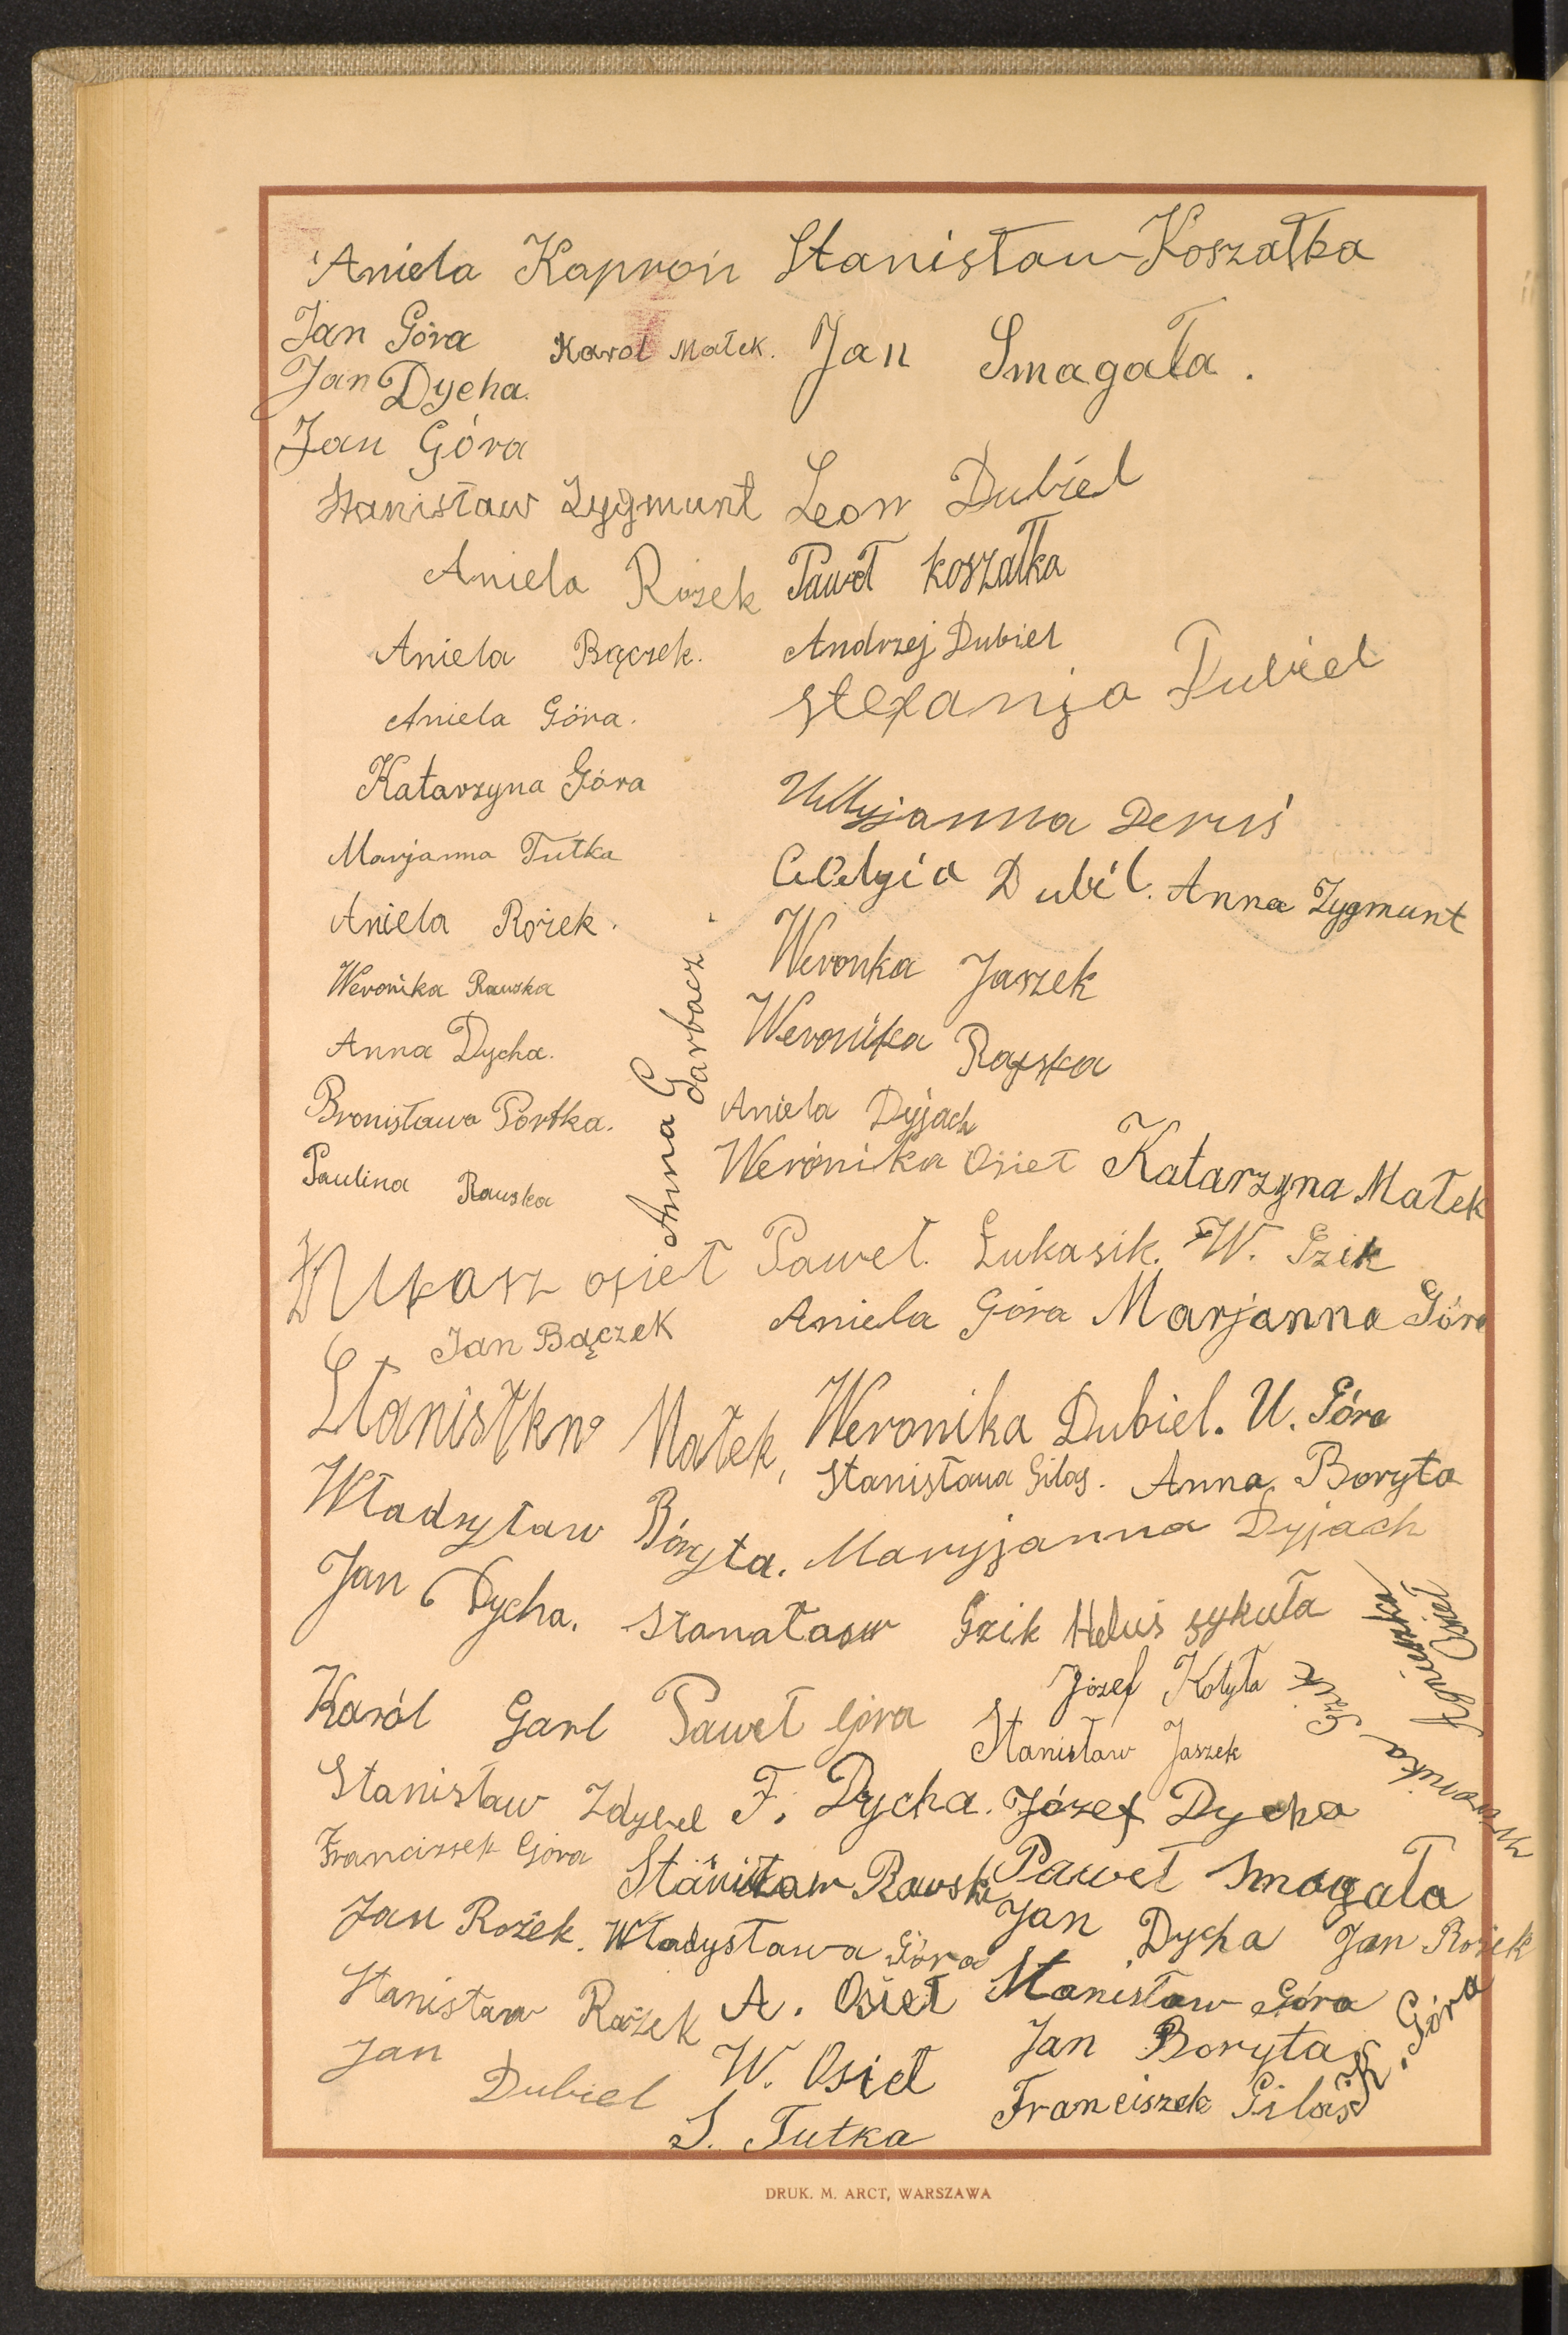 Aniela Kaproń Stanisław Koszałka
Jan Góra Karol Małek. Jan Smagała.
Jan Dycha.
Jan Góra
Stanisław Zygmunt Leon Dubiel
Aniela Rożek Paweł koszałka
Aniela Bączek. Andrzej Dubiel
Aniela Góra. Stefanja Dubiel
Katarzyna Góra
Marjanna Tutka Deruś
Aniela Rożek. Dubil. Anna Zygmunt
Weronika Rauska Weronka Jaszek
Anna Dycha. Weronika Rafska
Bronisława Portka. Aniela Dyjach
Paulina Rauska Weronika Osieł Katarzyna Małek
Anna Garbacz
Łukasz osieł Paweł. Łukasik. W. Gzik
Jan Bączek Aniela Góra Marjanna Góra
Małek, Weronika Dubiel. U. Góra
Stanisława Gilas. Anna Boryta
Władzyław Bóryta. Maryjanna Dyjach
Jan Dycha. Stanataow Gzik Helus sykuła
Agnieszka Osieł
Weronika Gzik
Karól Garl Paweł Góra Józef Kotyła
Stanisław Jaszek
Stanisław Zdybel F. Dycha. Józef Dycha
Franciszek Góra Stanisław Rawski Paweł Smagała
Jan Rożek. Władysława Góra Jan Dycha Jan Rożek
Stanisław Rożek A. Osieł Stanisław Góra
Jan Dubiel W. Osieł Jan Boryta
S. Tutka Franciszek Gilas K. Góra
DRUK. M. ARCT, WARSZAWA